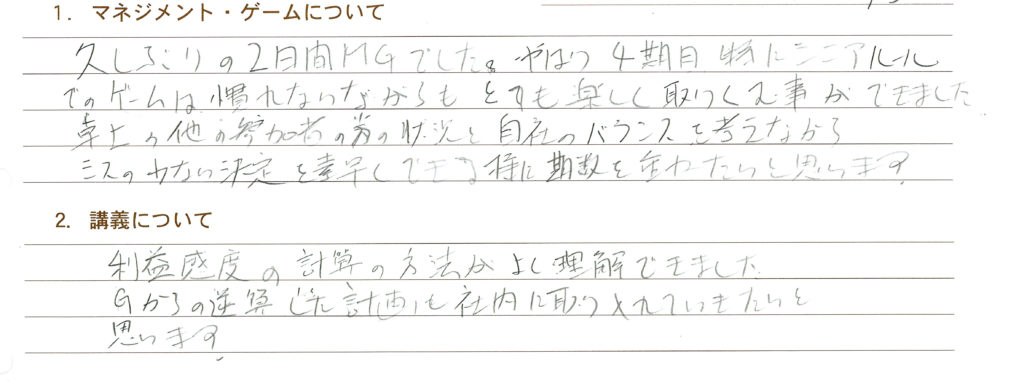 1. マネジメント・ゲームについて
久しぶりの2日間MGでした。やはり4期目 特にシニアルール
でのゲームは慣れないながらもとても楽しく取りくむ事ができました
卓上の他の参加者の方の状況と自社のバランスを考えながら
ミスの少ない決定を素早くできる様に期数を重ねたいと思います。
2. 講義について
利益感度の計算の方法がよく理解できました
Gからの逆算した計画も社内に取り入れていきたいと
思います。